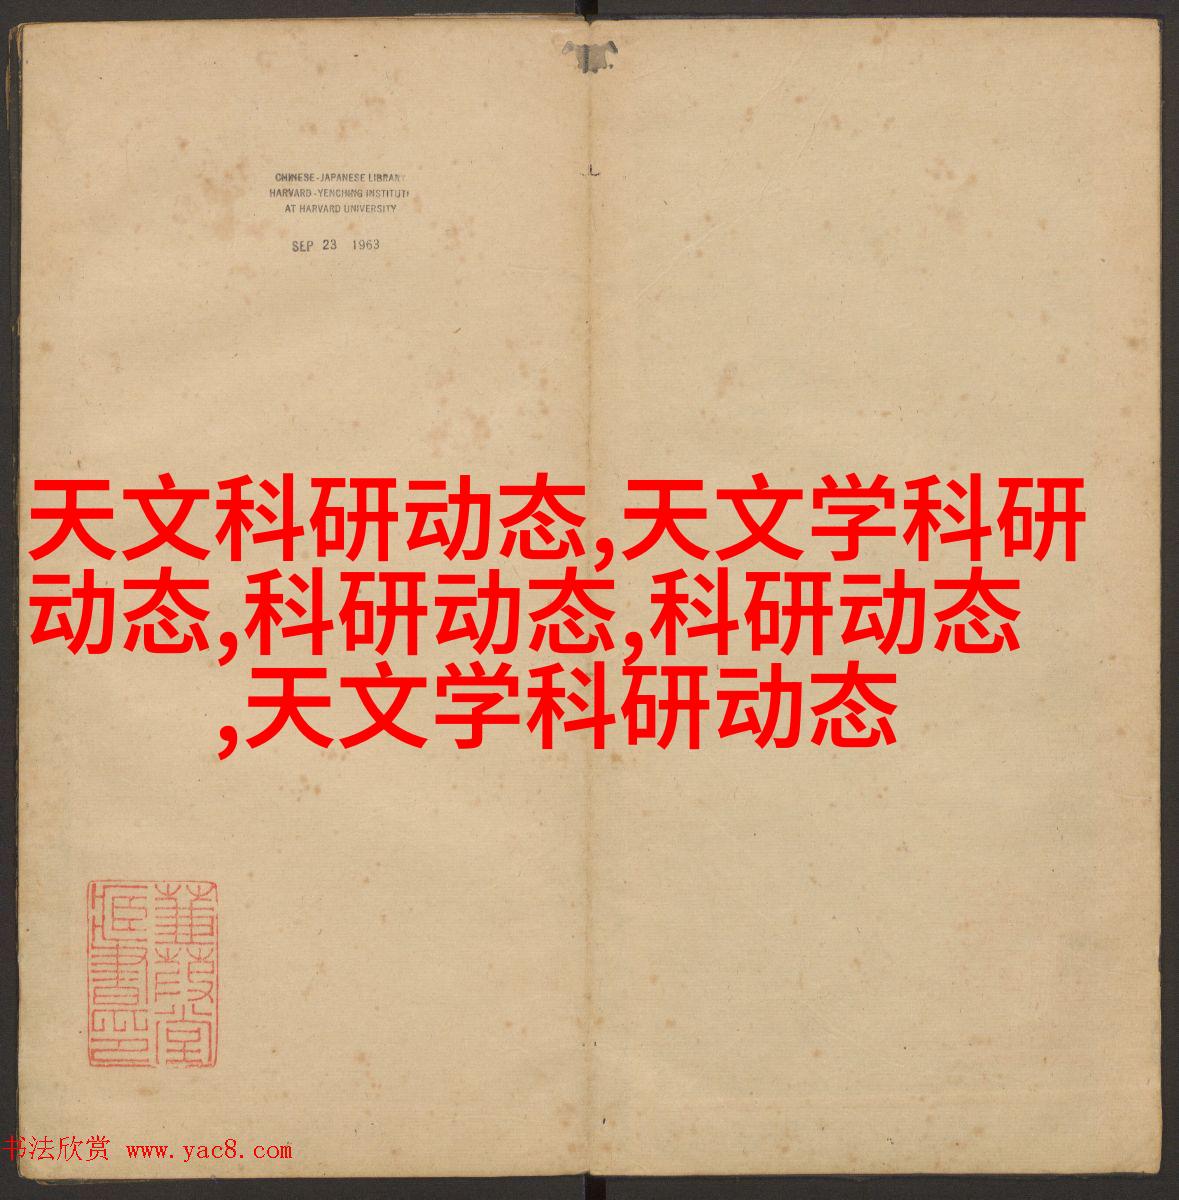 CHINESE-JAPANESE LIBRARY
HARVARD-YENCHING INSTITUT
AT HARVARD UNIVERSITY
SEP 23 1963
天文科研动态,天文学科研
动态,科研动态,科研动态
,天文学科研动态
蒹葭堂
藏書印
书法欣赏 www.yac8.com